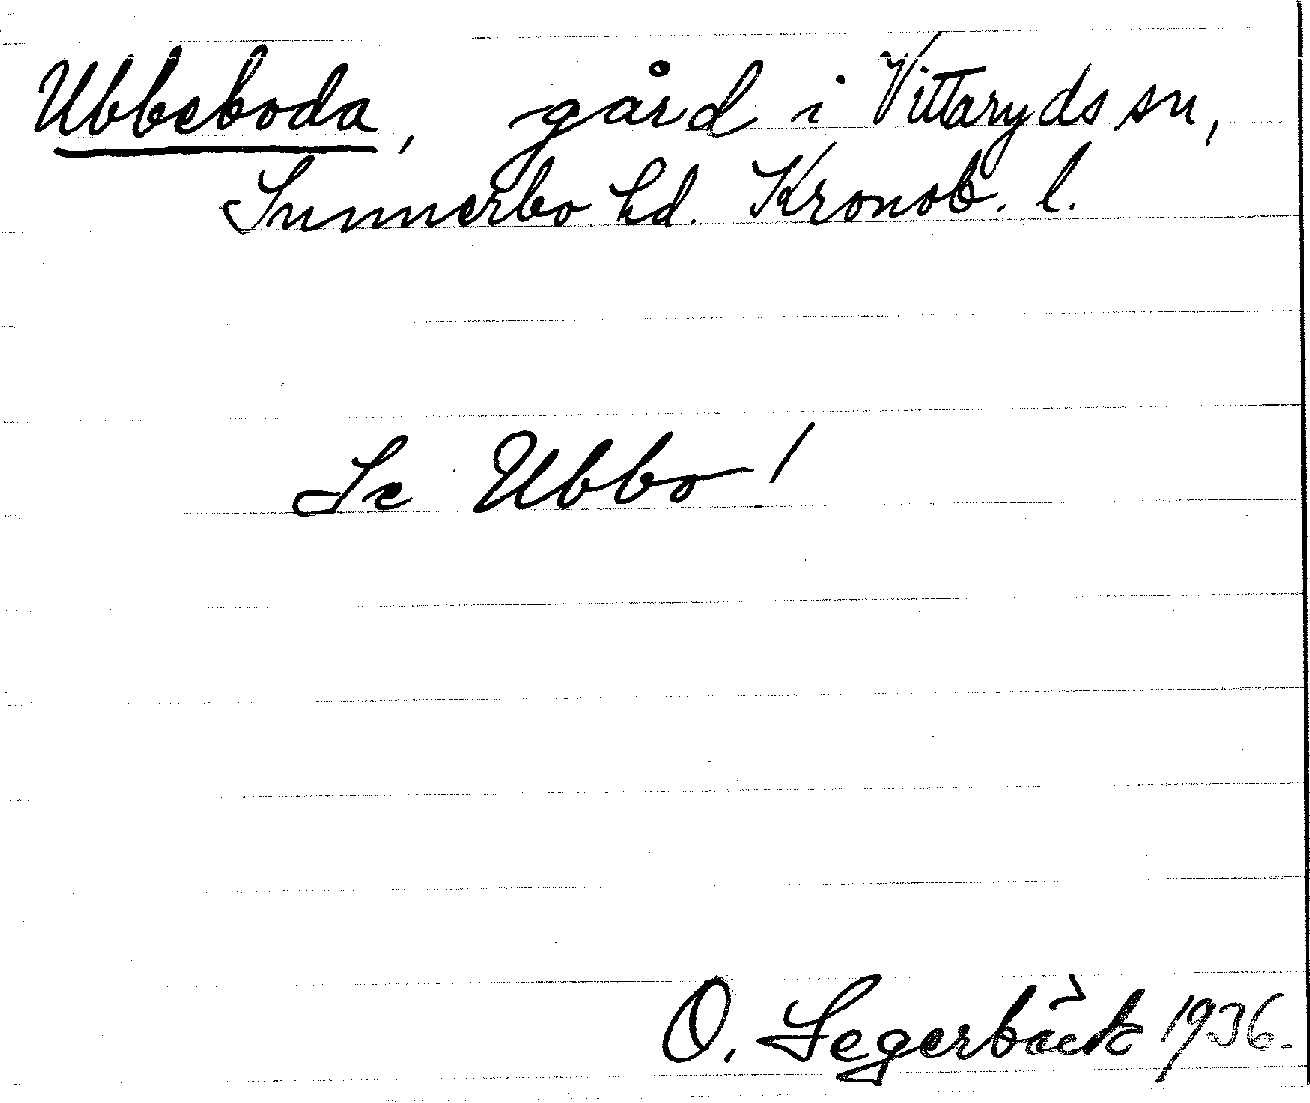 Ubbeboda, gård i Vittaryds sn,
Sunnerbo hd. Kronob. l.
Se Ubbo!
O. Segerbäck 1936.